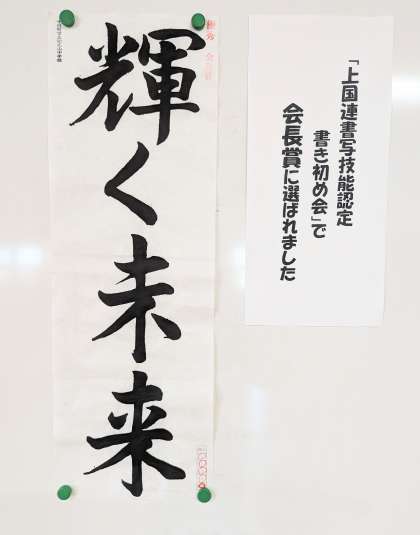 「上国連書写技能認定
書き初め会」で
会長賞に選ばれました
輝く未来